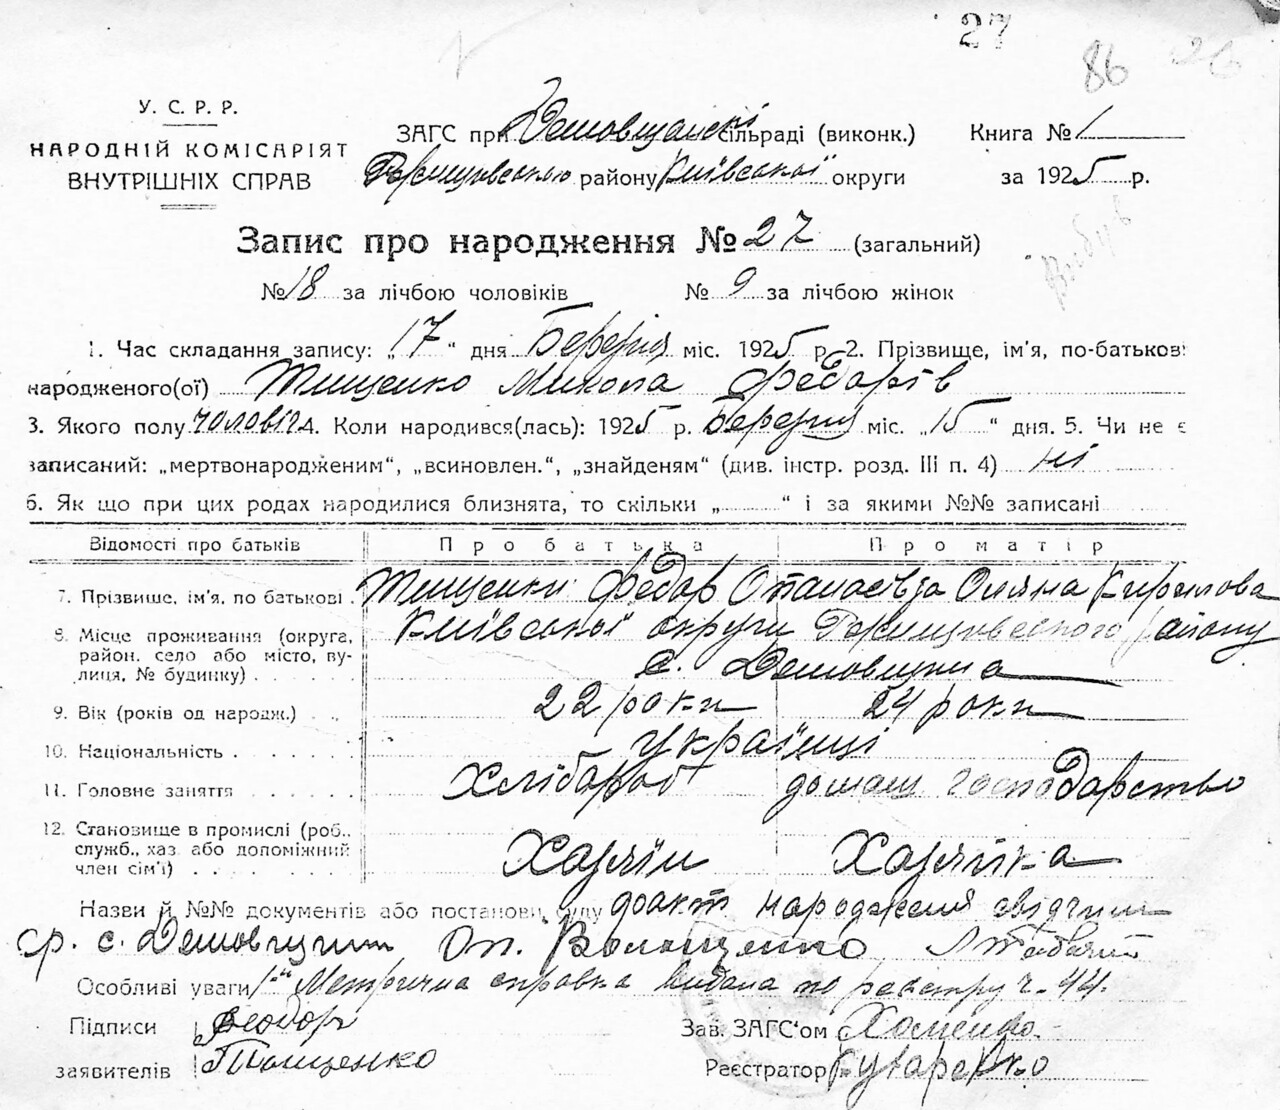 27
86 26
У. С. Р. Р.
НАРОДНІЙ КОМІСАРІЯТ
ВНУТРІШНІХ СПРАВ
ЗАГС при Демовщанскі сільраді (виконк.) Книга № 1
району Київської округи за 1925 р.
Запис про народження № 27 (загальний)
Вибув
№ 18 за лічбою чоловіків № 9 за лічбою жінок
1. Час складання запису: „17" дня Березня міс. 1925 р. 2. Прізвище, ім'я, по-батькові
народженого(ої) Тищенко Микола Федорів
3. Якого полу чоловіч. 4. Коли народився(лась): 1925 р. Березня міс. „15" дня. 5. Чи не є
записаний: „мертвонародженим", „всиновлен.", „знайденям" (див. інстр. розд. III п. 4) ні
6. Як що при цих родах народилися близнята, то скільки „ " і за якими №№ записані
Відомості про батьків Про батька Про матір
7. Прізвище, ім'я, по батькові Тищенки Федор Опанасів Оляна Кирилова
8. Місце проживання (округа, район, село або місто, вулиця, № будинку) Київської округи району
с. Демовщина
9. Вік (років од народж.) 22 роки 24 роки
10. Національність українці
11. Головне заняття Хлібороб домаш господарство
12. Становище в промислі (роб., служб., хаз. або допоміжний член сім'ї) Хазяїн Хазяйка
Назви й №№ документів або постанови суду факт народженя свідчим
гр. с. Демовщини Оп. Волощенко
Особливі уваги 1" Метрична справка видана по реєстру ч. 44.
Підписи Феодор Зав. ЗАГС'ом Хоменко
заявителів Тищенко Реєстратор